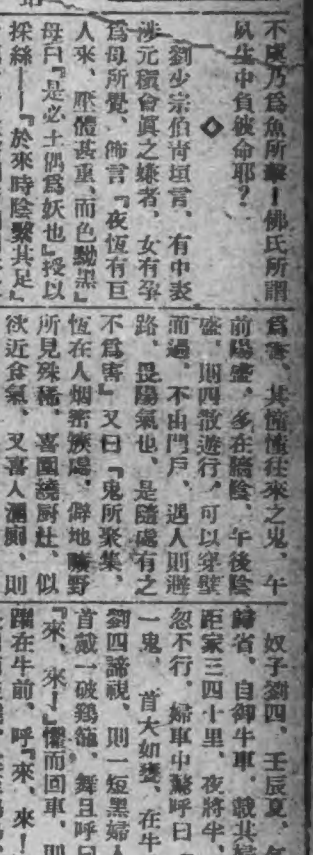 不虞乃爲魚所擊！佛氏所謂
夙生中負彼命耶？
◆
劉少宗伯靑垣言、有中表
涉元稹會眞之嫌者、女有孕
爲母所覺、佈言『夜恆有巨
人來、壓體甚重、而色黝黑』
母曰『是必土偶爲妖也』授以
採絲——『於來時陰繫其足』
爲害、其憧憧往來之鬼、午
前陽盛、多在牆陰、午後陰
盛、則四散遊行、可以穿壁
而過、不由門戶、遇人則避
路、畏陽氣也、是隨處有之
不爲害』又曰『鬼所聚集、
恆在人烟密簇處、僻地曠野
所見殊稀、喜圍繞厨灶、似
欲近食氣、又喜人溷厠、則
奴子劉四、壬辰夏、
歸省、自御牛車、載其婦
距家三四十里、夜將半、
忽不行、婦車中驚呼曰『
一鬼、首大如甕、在牛
劉四諦視、則一短黑婦人
首戴一破鷄籠、舞且呼曰
『來、來！』懼而回車、則
躍在牛前、呼『來、來！